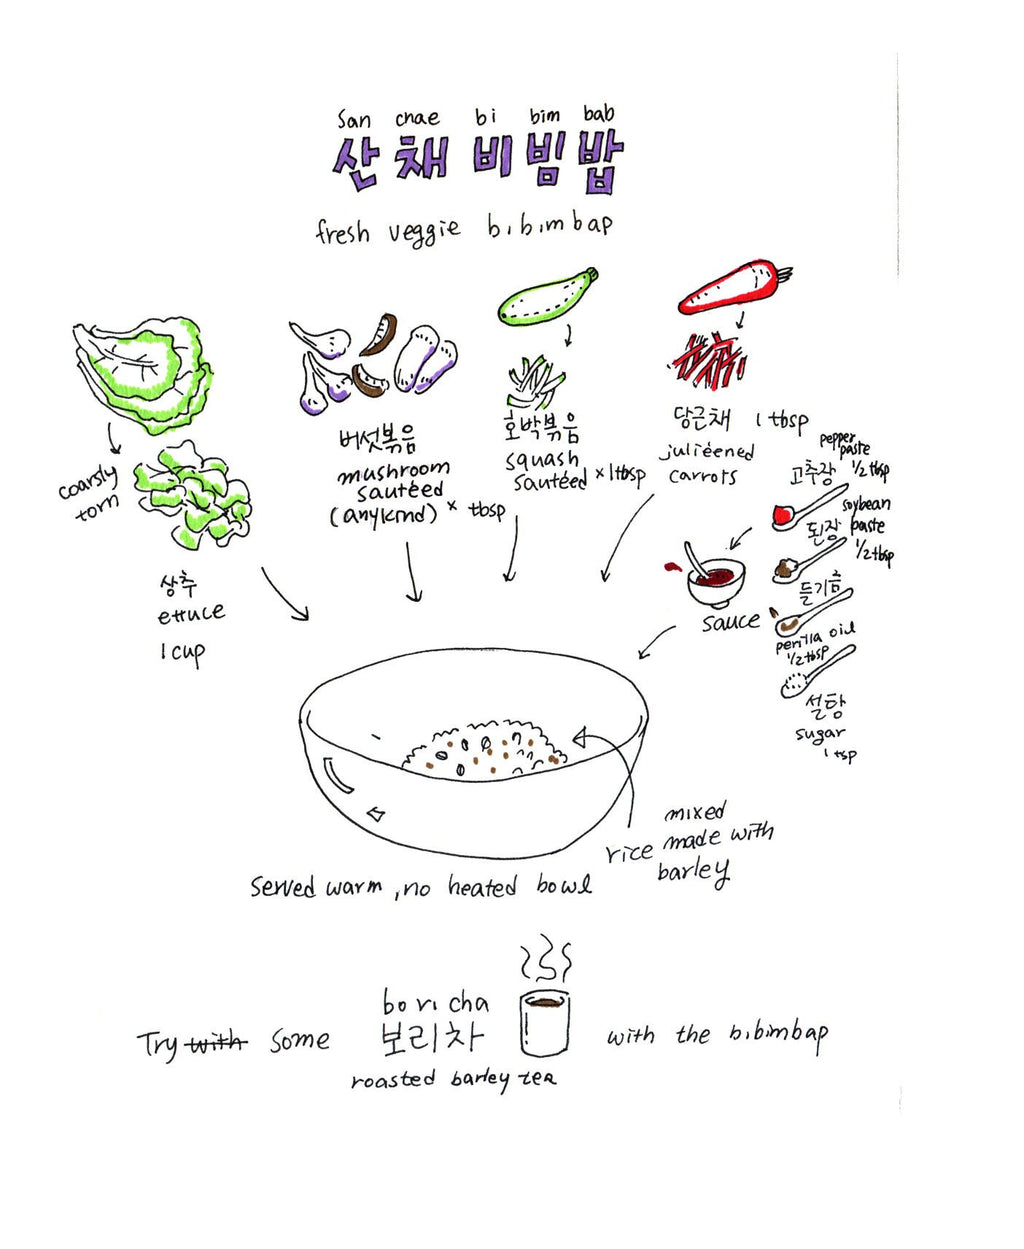 San chae bi bim bab
산채비빔밥
fresh veggie bibimbap
coarsly
torn
상추
ettuce
1 cup
버섯볶음
mushroom
sautéed
(any kind) × tbsp
호박볶음
squash
sautéed × 1 tbsp
당근채 1 tbsp
juliéened
carrots
pepper
paste
고추장 1/2 tbsp
soybean
된장 paste
1/2 tbsp
들기름
perilla oil
1/2 tbsp
설탕
sugar
1 tsp
sauce
mixed
rice made with
barley
Served warm, no heated bowl
bo ri cha
Try with some 보리차 with the bibimbap
roasted barley tea